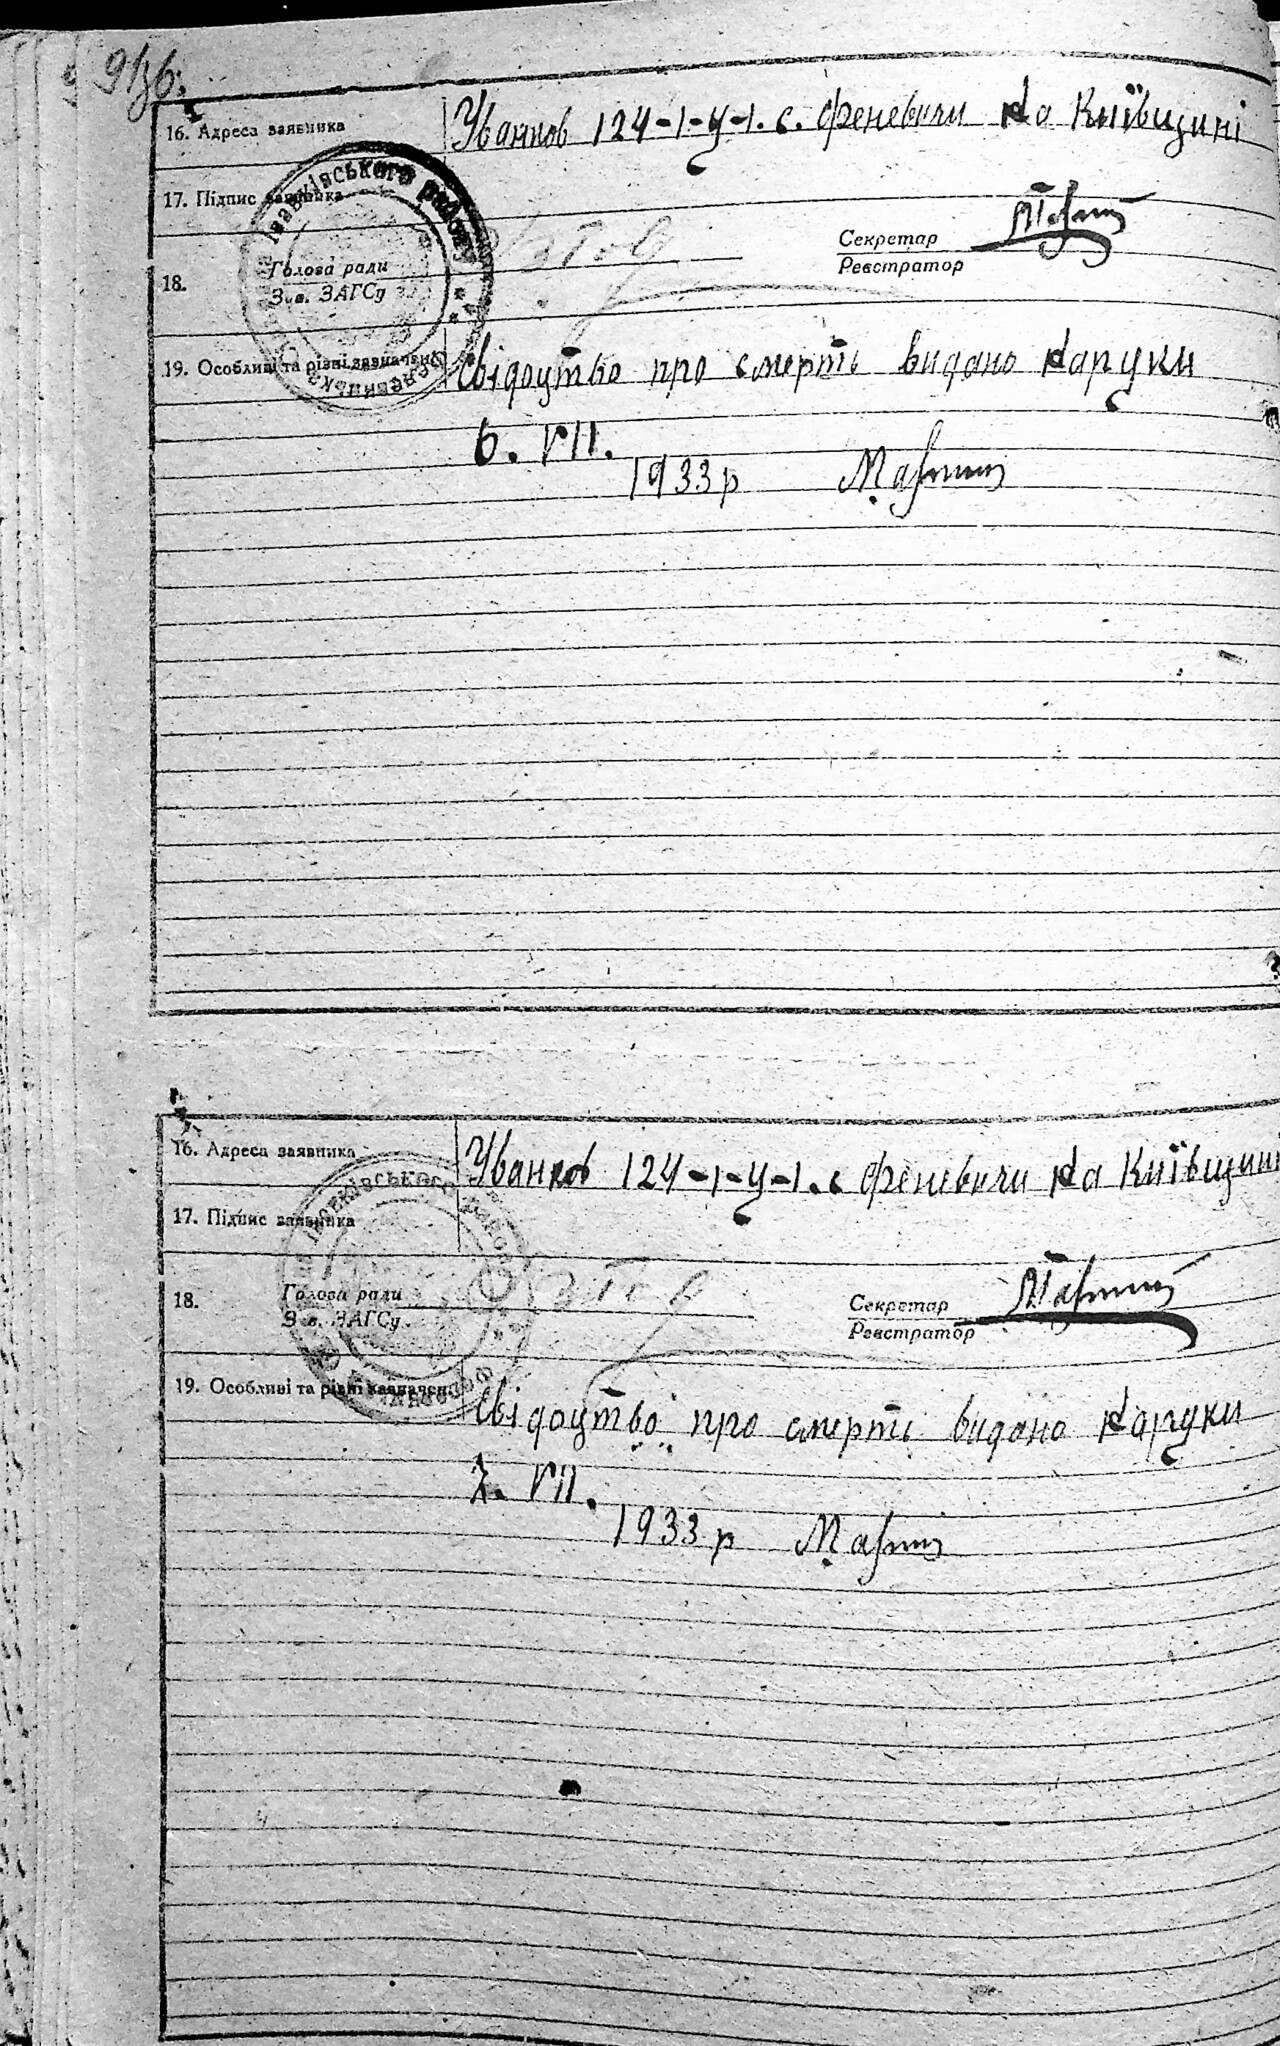 91зв.
16. Адреса заявника Уванков 124-1-у-1. с. Феневичи На Київщині
17. Підпис заявника
Секретар
Голова ради
Реєстратор
18.
Зав. ЗАГСу
19. Особливі та різні зазначення Свідоцтво про смерть видано На руки
6. VII.
1933 р
16. Адреса заявника Уванков 124-1-у-1. с Феневичи На Київщині
17. Підпис заявника
18. Голова ради
Зав. ЗАГСу.
Секретар
Реєстратор
19. Особливі та різні зазначення Свідоцтво про смерть видано На руки
7. VII.
1933 р